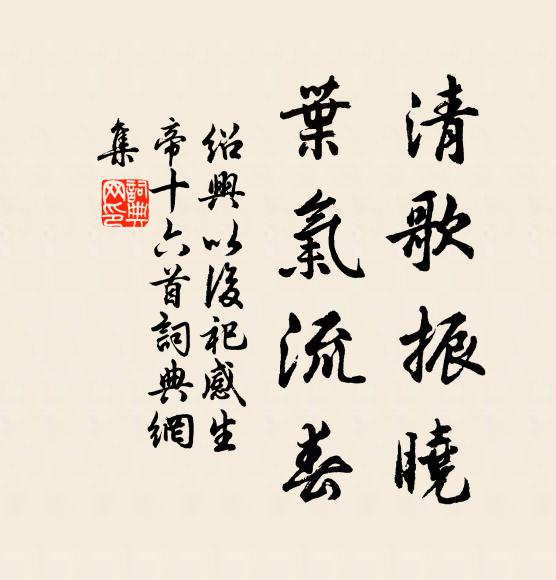 清歌振曉
葉氣流春
紹興以後祀感生
帝十六首詞典網
集
詞典
网印